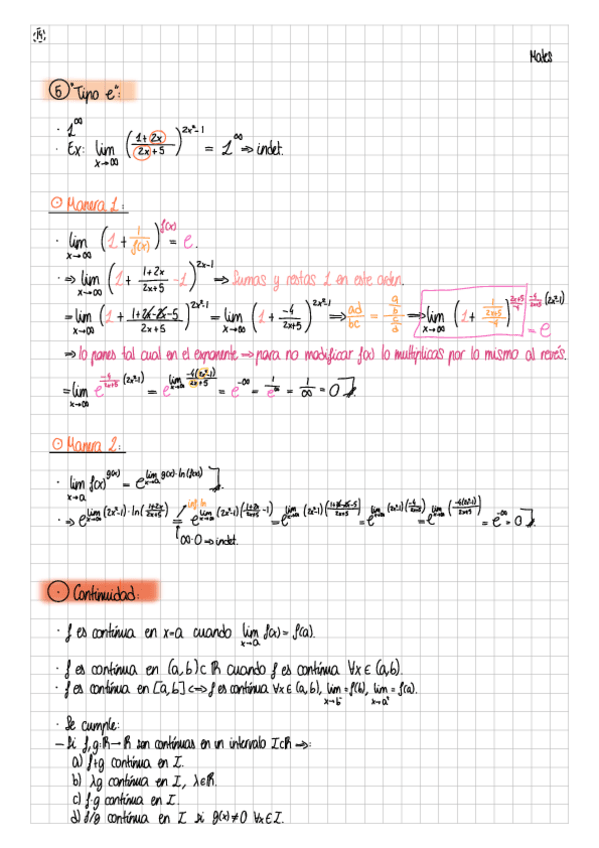 14
Mates
⑤ "Tipo e":
· 1^∞
· Ex: lim x→∞ ((1+2x)/(2x+5))^(2x²-1) = 1^∞ ⇒ indet.
⊙ Manera 1:
· lim x→∞ (1 + 1/f(x))^f(x) = e.
· ⇒ lim x→∞ (1 + (1+2x)/(2x+5) - 1)^(2x-1) ⇒ Sumas y restas 1 en este orden.
= lim x→∞ (1 + (1+2x-2x-5)/(2x+5))^(2x²-1) = lim x→∞ (1 + -4/(2x+5))^(2x²-1) ⇒ ad/bc = (a/b)/(c/d) ⇒ lim x→∞ (1 + 1/((2x+5)/-4))^((2x+5)/-4 · -4/(2x+5) (2x²-1)) = e
⇒ lo pones tal cual en el exponente ⇒ para no modificar f(x) lo multiplicas por lo mismo al revés.
= lim x→∞ e^(-4/(2x+5) (2x²-1)) = e^(lim x→∞ -4(2x²-1)/(2x+5)) = e^-∞ = 1/e^∞ = 1/∞ = 0].
⊙ Manera 2:
· lim x→a f(x)^g(x) = e^(lim x→a g(x)·ln(f(x)))].
inf. ln
· ⇒ e^(lim x→∞ (2x²-1)·ln((1+2x)/(2x+5))) = e^(lim x→∞ (2x²-1)((1+2x)/(2x+5) -1)) = e^(lim x→∞ (2x²-1)((1+2x-2x-5)/(2x+5))) = e^(lim x→∞ (2x²-1)(-4/(2x+5))) = e^(lim x→∞ (-4(2x²-1)/(2x+5))) = e^-∞ = 0].
∞·0 ⇒ indet.
· Continuidad:
· f es contínua en x=a cuando lim x→a f(x) = f(a).
· f es contínua en (a,b) ⊂ ℝ cuando f es contínua ∀x ∈ (a,b).
· f es contínua en [a,b] <=> f es contínua ∀x ∈ (a,b), lim x→b⁻ = f(b), lim x→a⁺ = f(a).
· Se cumple:
– Si f,g:ℝ→ℝ son contínuas en un intervalo I⊂ℝ ⇒:
a) f+g contínua en I.
b) λg contínua en I, λ∈ℝ.
c) f·g contínua en I.
d) f/g contínua en I si g(x)≠0 ∀x∈I.